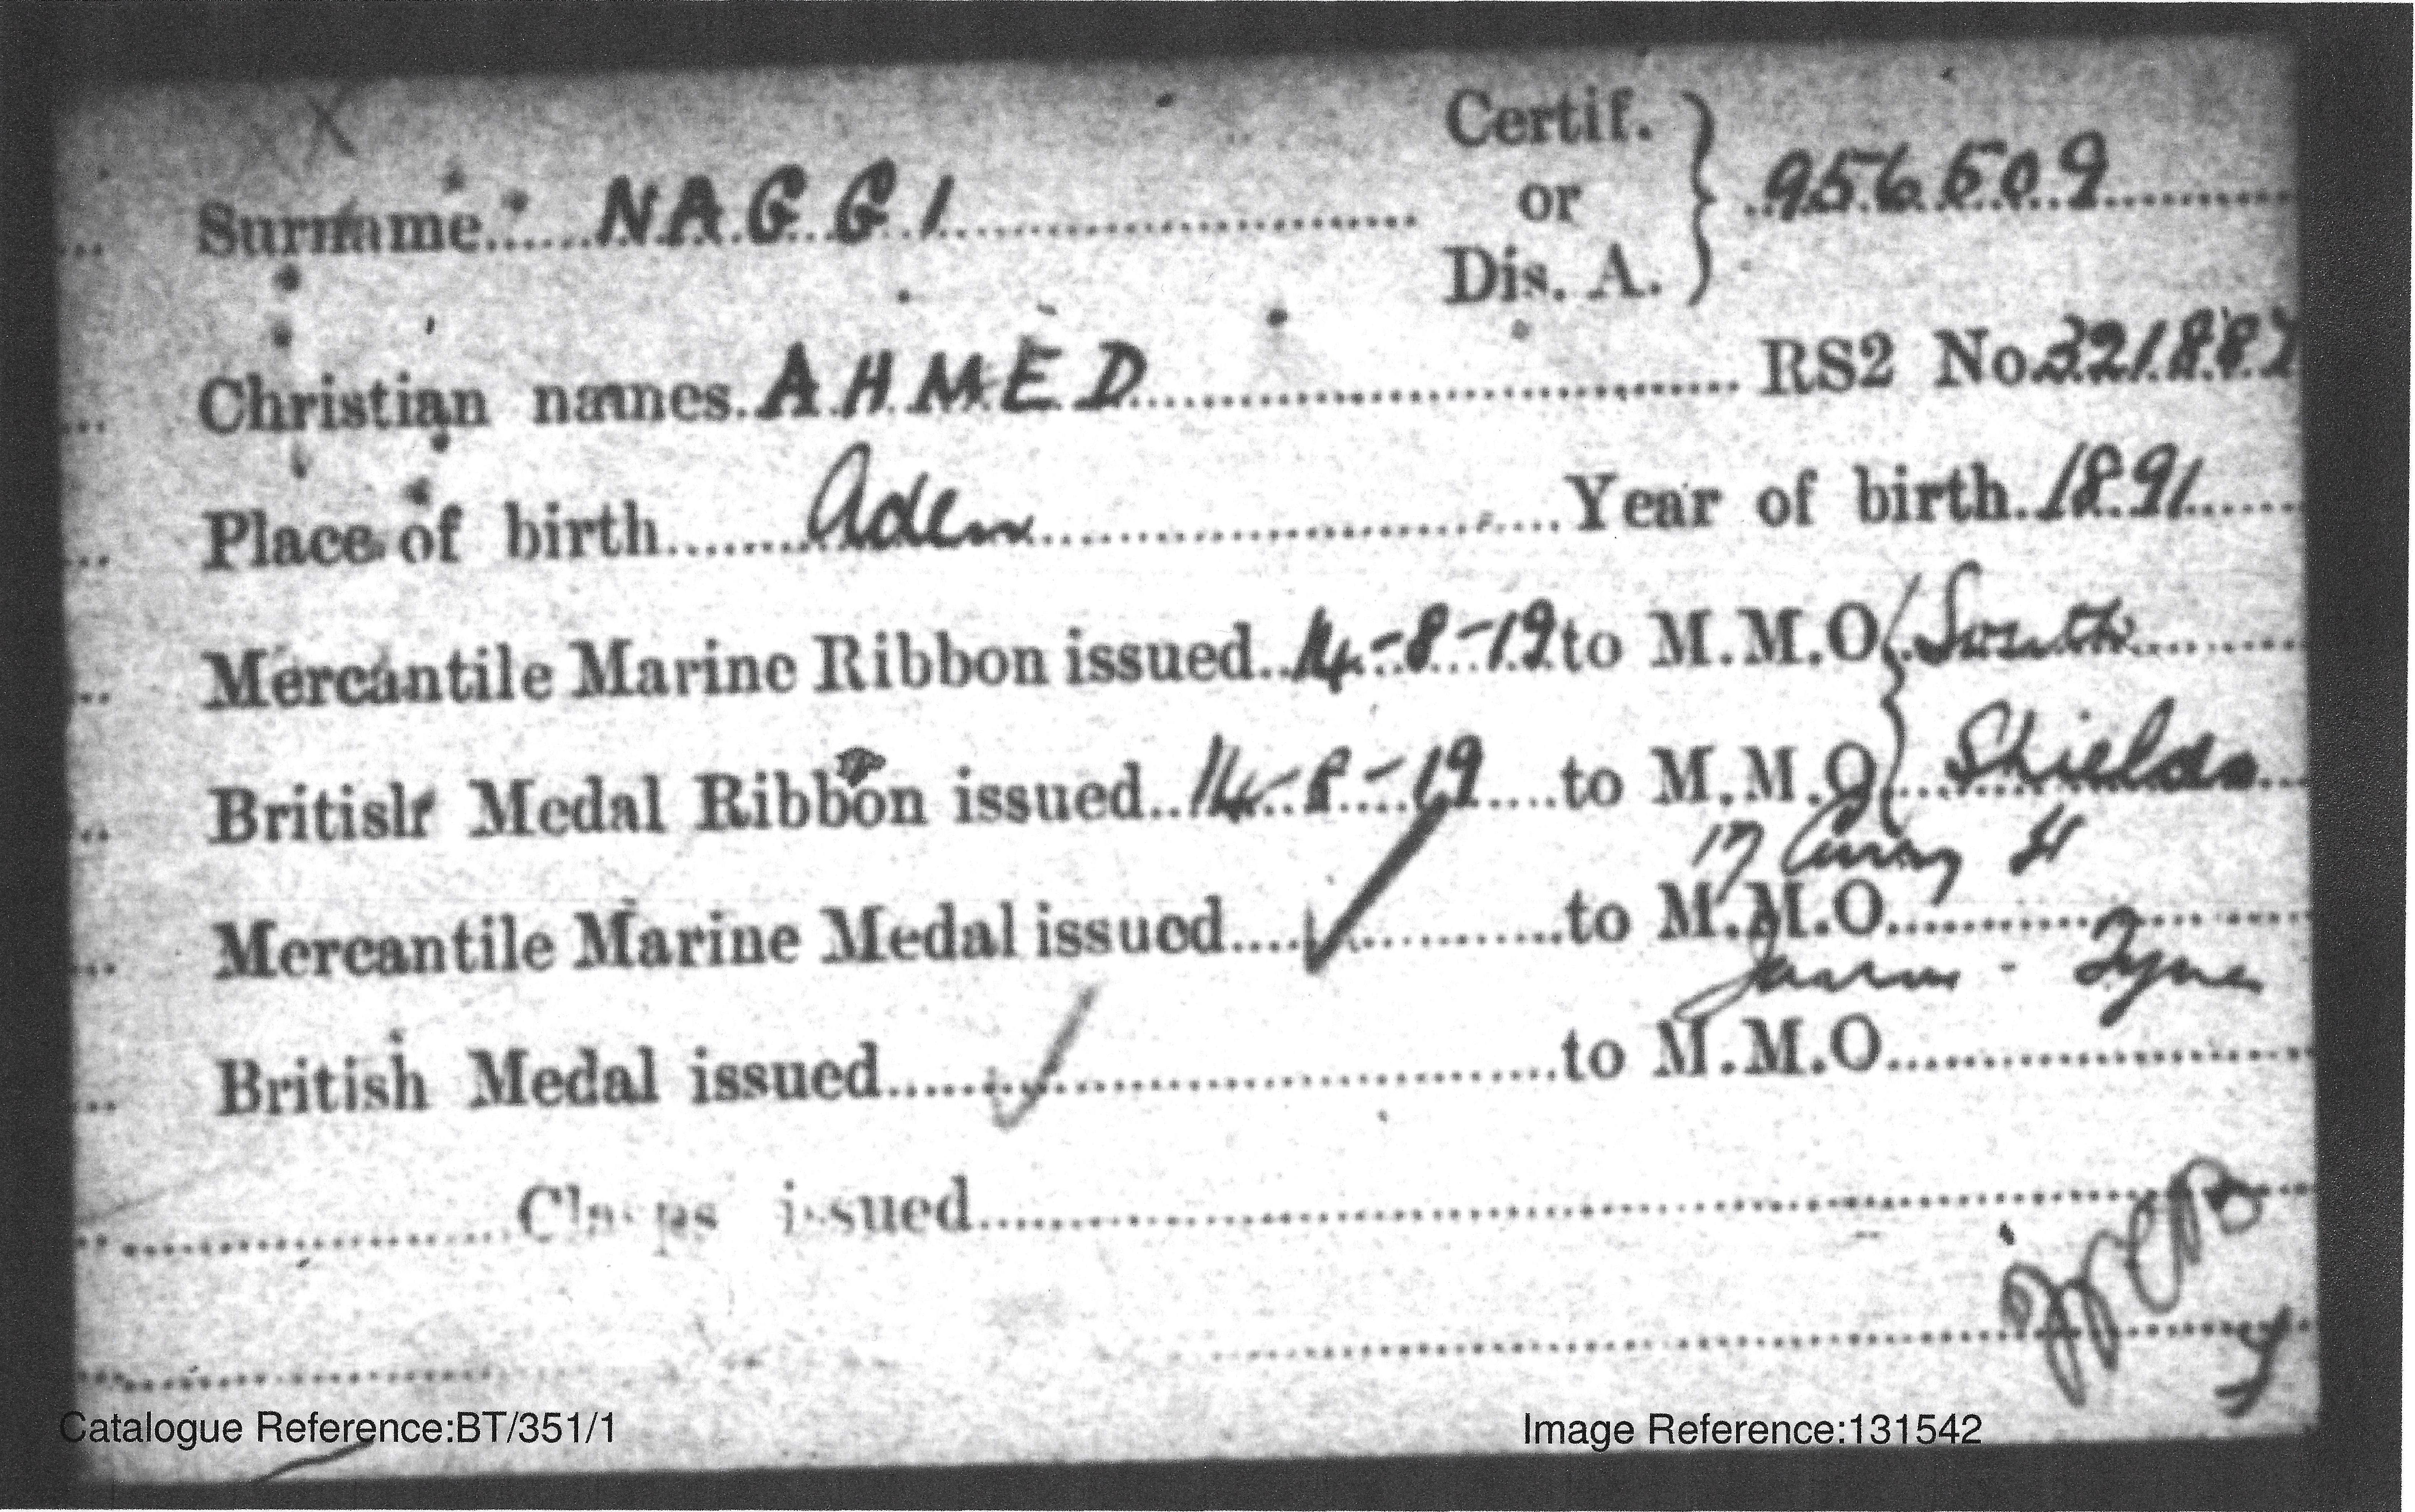 Certif.
Surname NAGGI or 956609
Dis. A.
Christian names AHMED RS2 No 321887
Place of birth Aden Year of birth 1891
Mercantile Marine Ribbon issued 14-8-19 to M.M.O South
British Medal Ribbon issued 14-8-19 to M.M.O Shields
17 St
Mercantile Marine Medal issued ✓ to M.M.O
Jarrow - Tyne
British Medal issued ✓ to M.M.O
Clasps issued
Catalogue Reference:BT/351/1 Image Reference:131542